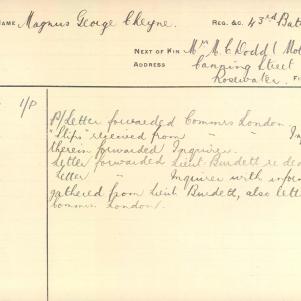 NAME Magnus George Cheyne. REG. &C. 43rd Bat
NEXT OF KIN Mrs M. C. Dodd (Mot
ADDRESS Canning Street
Rosewater. F
1/P
P/Letter forwarded Commrs London.
"Slips" received from " " In
therein forwarded Inquirer.
Letter forwarded Lieut Burdett re de
Letter " Inquirer with infor
gathered from Lieut Burdett, also lett
Commrs London.